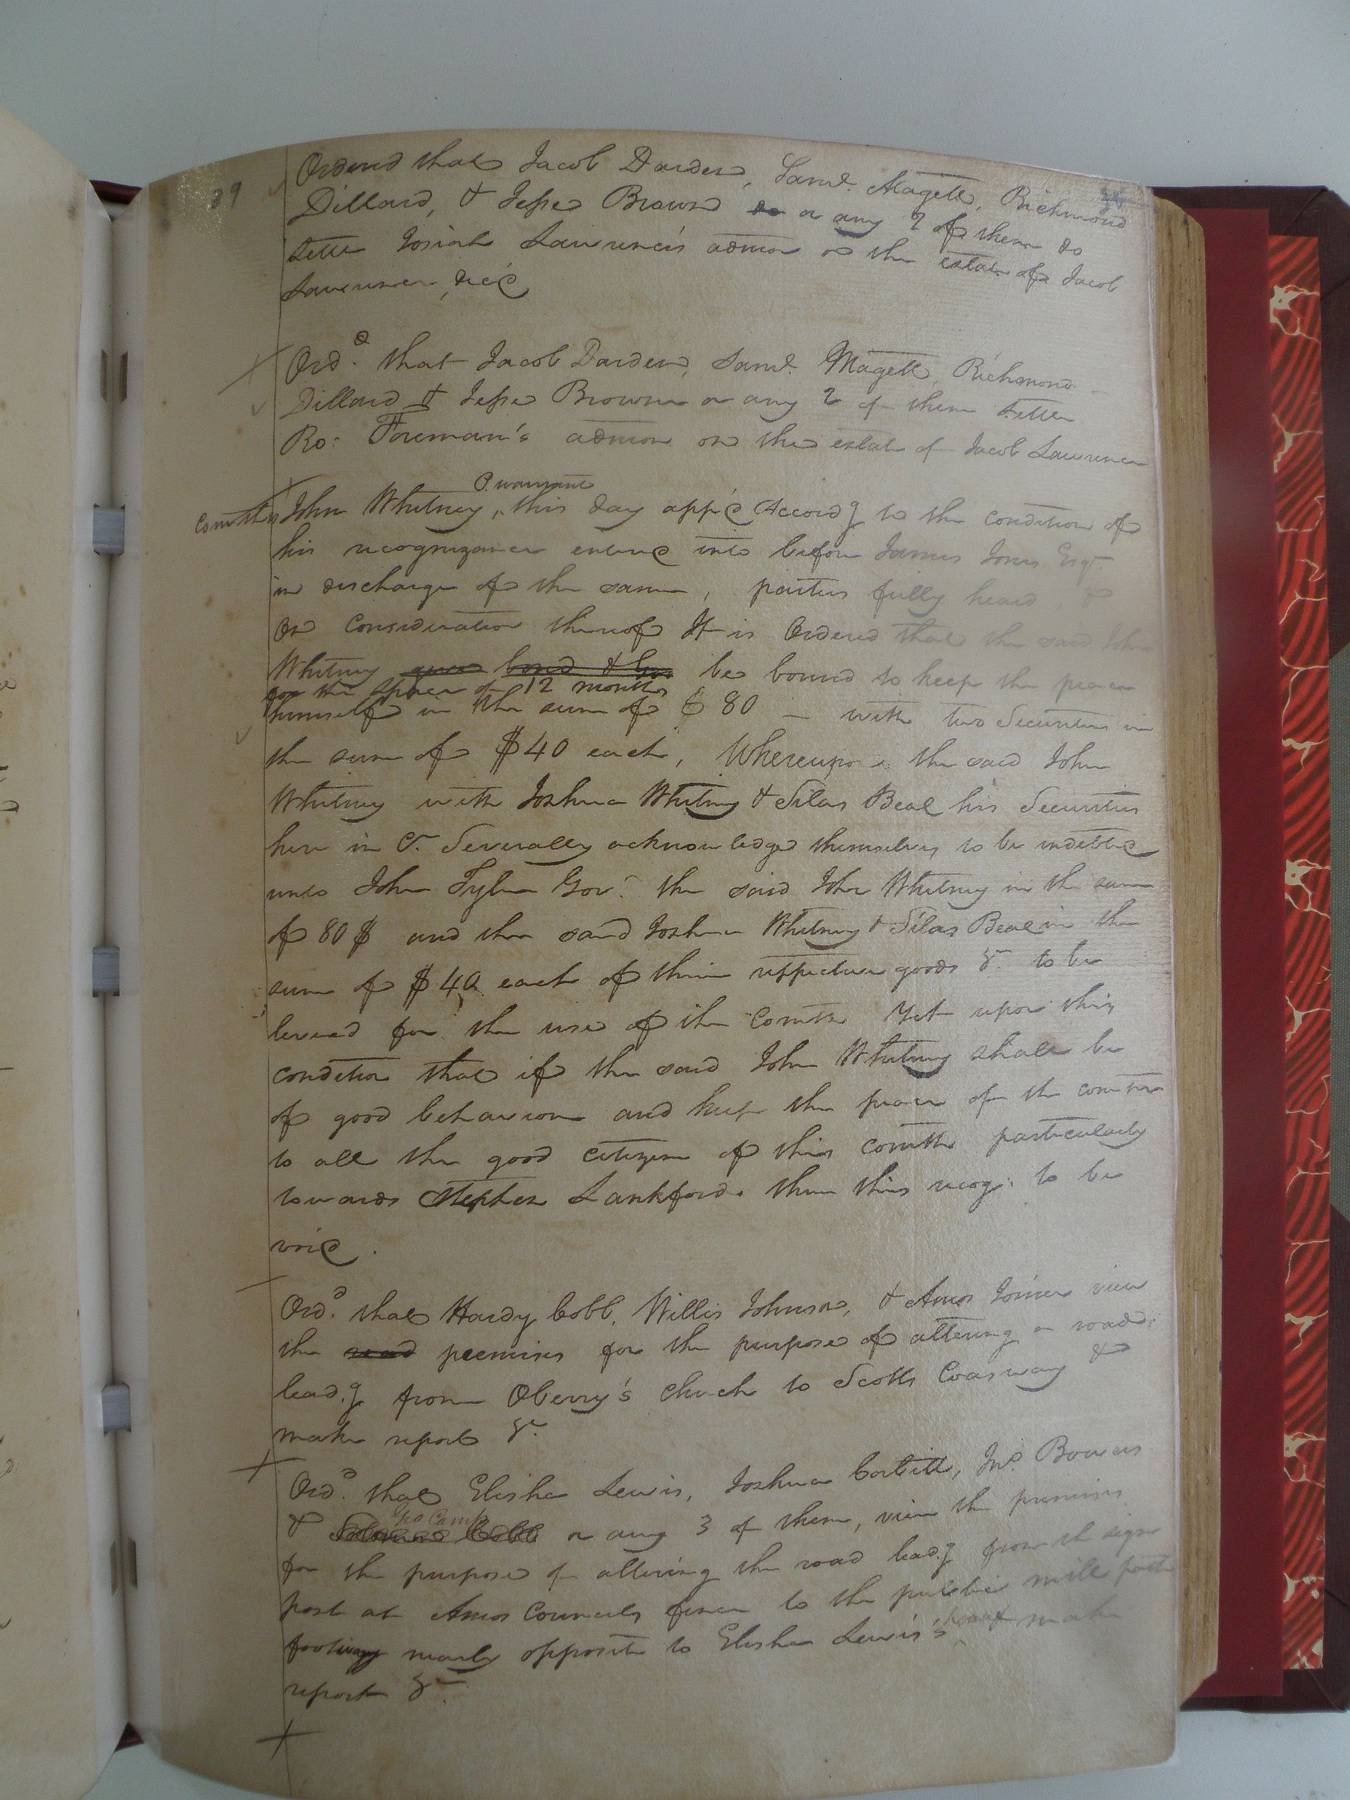 39
Ordered that Jacob Darden, Saml. Magett, Richmond
Dillard, & Jesse Brown do or any 2 of them do
settle Josiah Lawrence's admon on the estate of Jacob
Lawrence, dec'd
Ord.d that Jacob Darden, Saml. Magett, Richmond
Dillard & Jesse Brown or any 2 of them settle
Ro: Foreman's admon on the estate of Jacob Lawrence
P. warrant
Comth vs John Whitney, this day app'd Accord.g to the condition of
his recognizance entered into before James Jones Esqr
in discharge of the same, parties fully heard &
On consideration thereof It is Ordered that the said John
Whitney bond & be bound to keep the peace
for the space of 12 months
himself in the sum of $ 80 — with two Securities in
the sum of $40 each, Whereupon the said John
Whitney with Joshua Whitney & Silas Beal his Securities
here in Ct. Severally acknowledged themselves to be indebted
unto John Tyler Govr. the said John Whitney in the sum
of 80 $ and the said Joshua Whitney & Silas Beal in the
sum of $ 40 each of their respective goods &c to be
levied for the use of the Comth Yet upon this
condition that if the said John Whitney shall be
of good behaviour and keep the peace of the comth
to all the good citizens of this comth particularly
towards Stephen Lankford. then this recog: to be
void.
Ord.d that Hardy Cobb, Willis Johnson, & Amos Joiner view
the road premises for the purpose of altering a road
lead.g from Oberry's Church to Scotts Coasway &
make report &c
Ord.d that Elisha Lewis, Joshua Corbitt, Jno. Bowers
Geo Camp
& Solomon Cobb or any 3 of them, view the premises
for the purpose of altering the road lead.g from the sign
post at Amos Councils fence to the public mill path
nearly opposite to Elisha Lewis's & make
report &c